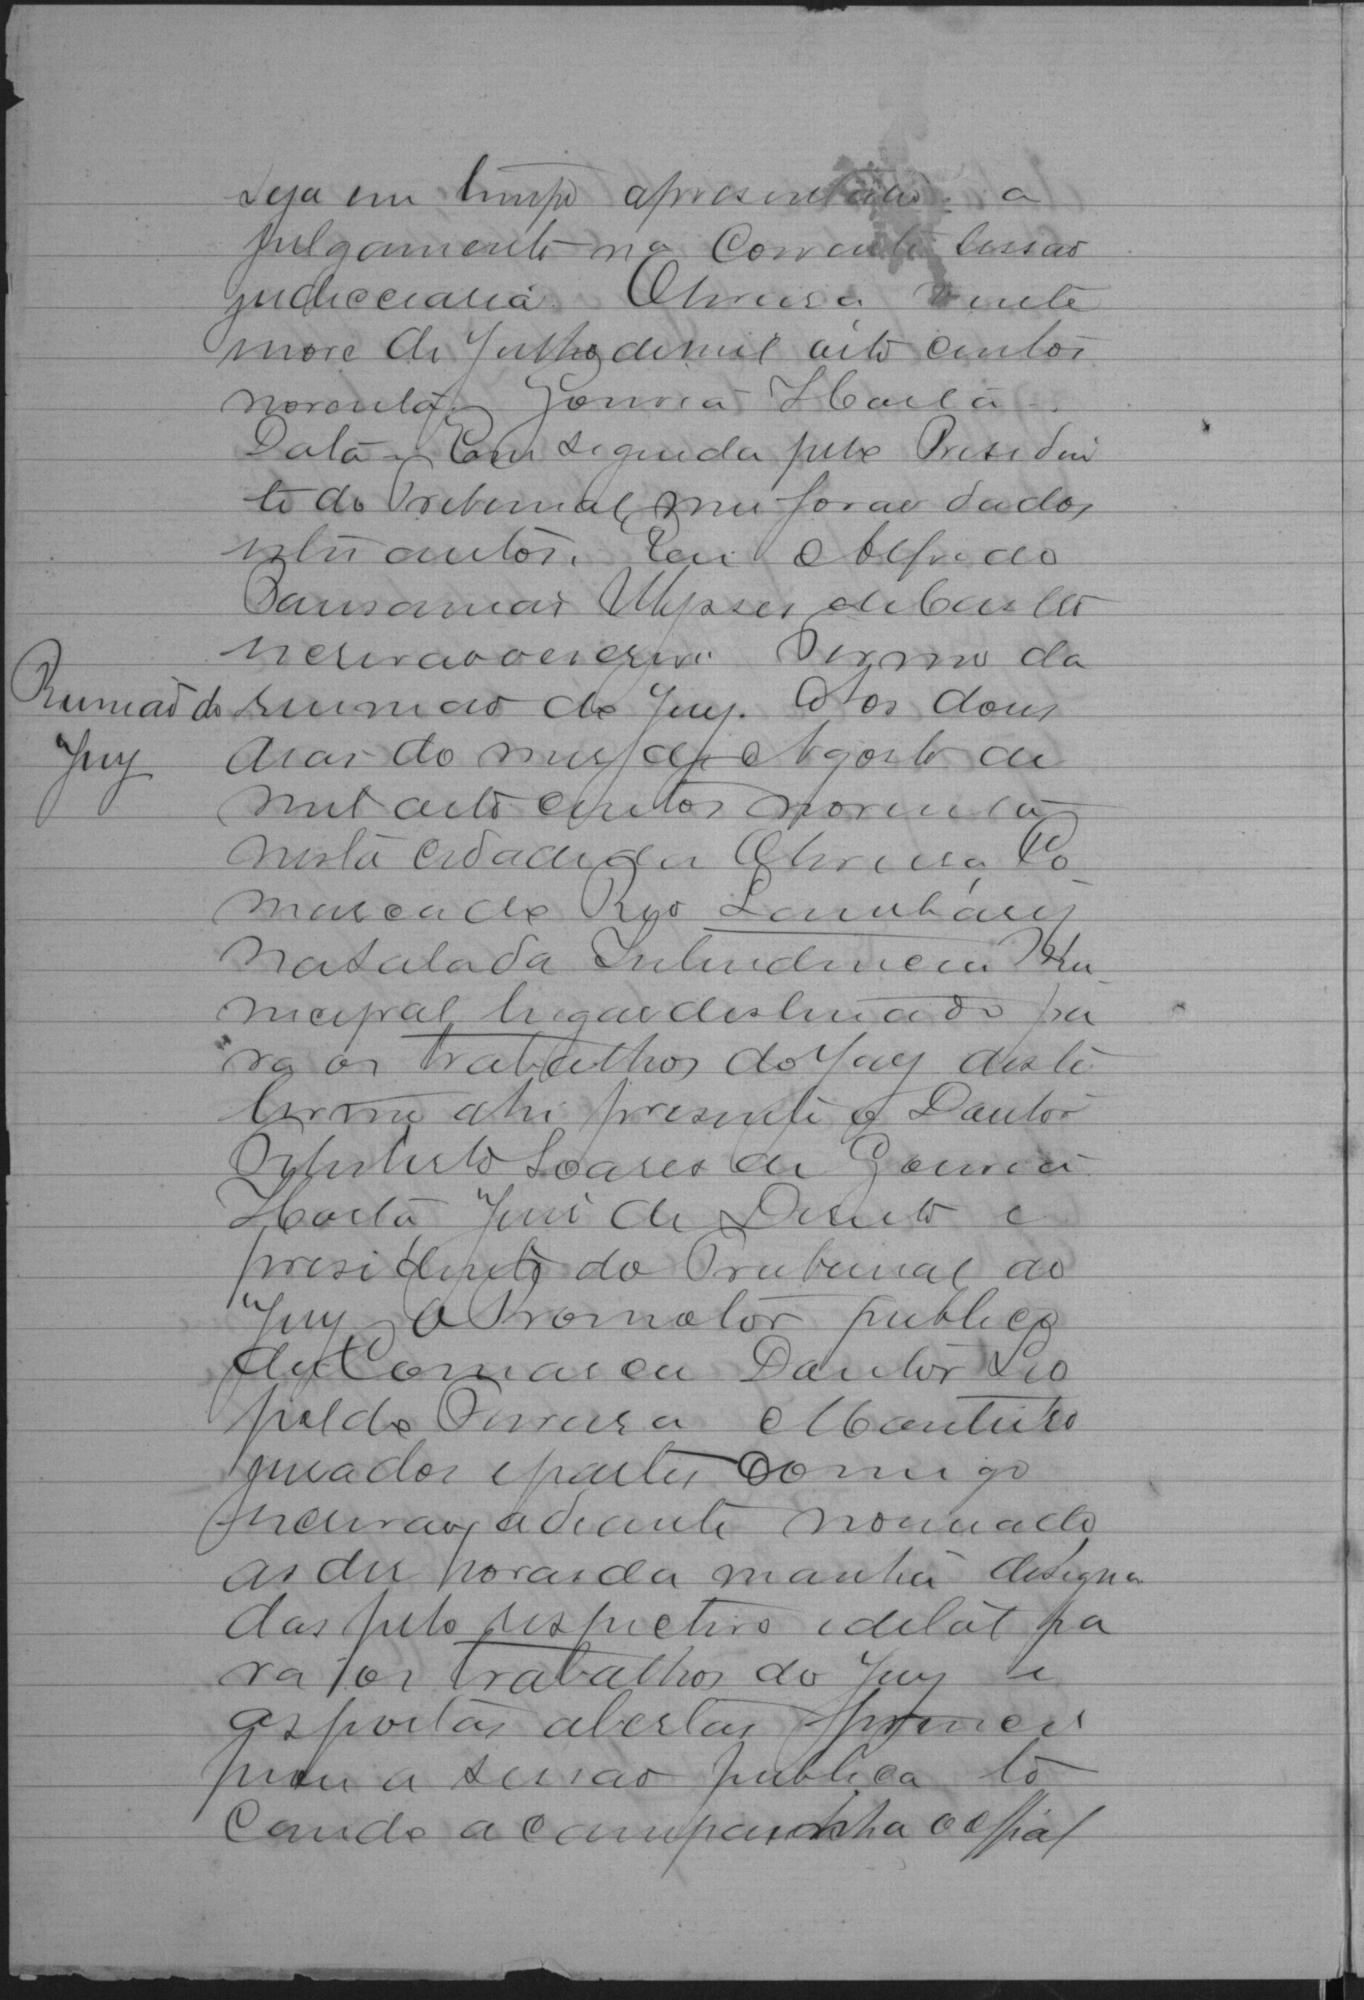 seja em tempo apresentado a
julgamento na corrente sessão
judicciaria. Oliveira vinte
nove de Julho de mil oito centos
noventa. Gouveia Horta
Data. Em seguida pelo Presiden
te do Tribunal me forão dados
estes autos. Eu Alfredo
Ulysses de Castro
escrivão o escrevi. Termo da
Reunião do reunião do Jury. Aos dous
Jury dias do mez de Agosto de
mil oito centos noventa
nesta cidade da Oliveira, Co
marca do Ryo Lambary
na sala da Intendencia Mu
nicipal lugar destinado pa
ra os trabalhos do Jury deste
termo ahi presente o Doutor
Soares de Gouveia
Horta Juis de Direito e
presidente do Tribunal do
Jury, o Promotor publico
da Comarca Doutor Leo
poldo Ferreira Monteiro
jurados e partes comigo
escrivão adiante nomeado
as dez horas da manhã designa
das pelo respectivo edital pa
ra os trabalhos do Jury e
as portas abertas prince
piou a sessão publica to
cando a campainha o offial